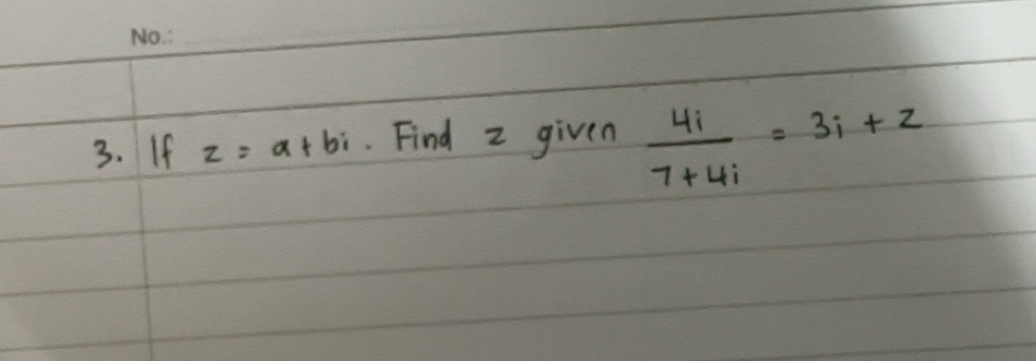 No.:
3. If z = a + bi. Find z given 4i / 7 + 4i = 3i + z